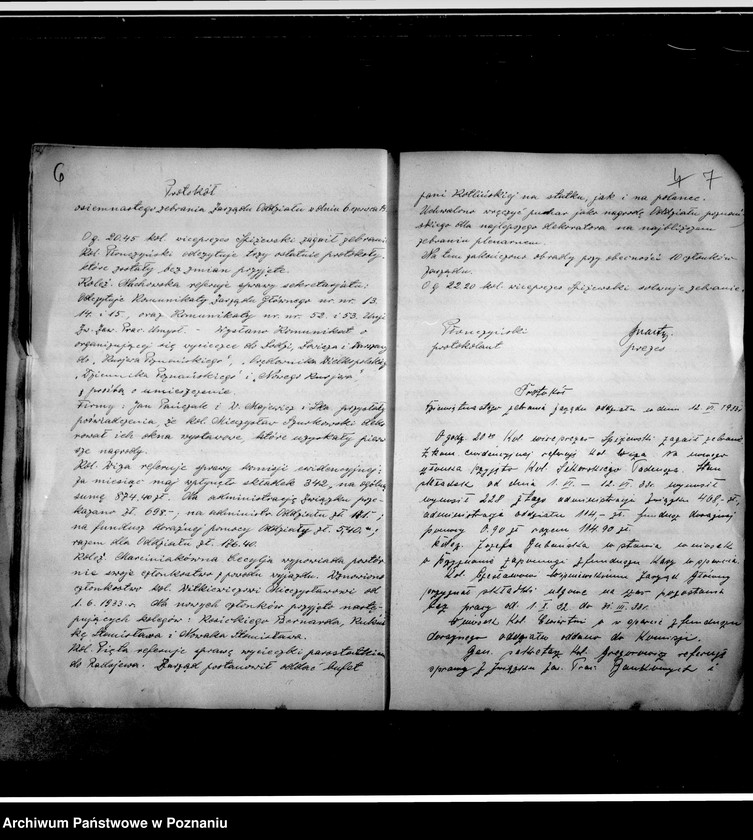 6
Protokół
osiemnastego zebrania Zarządu Oddziału z dnia 6 czerwca
O g. 20.45 kol. wiceprezes Spiżewski zagaił zebranie
Kol. Płonczyński odczytuje tezy ostatnie protokoły,
które zostały bez zmian przyjęte.
Koleż. Nachowska referuje sprawy sekretarjatu:
Odczytuje Komunikaty Zarządu Głównego nr. nr. 13.
14. i 15., oraz Komunikaty nr. nr. 52. i 53. Unji
Zw. Zaw. Prac. Umysł. - Wysłano Komunikat o
organizującej się wycieczce do Łodzi, Łowicza i Warszawy
do „Kurjera Poznańskiego", „Orędownika Wielkopolskiego"
„Dziennika Poznańskiego" i „Nowego Kurjera"
z prośbą o umieszczenie.
Firmy: Jan Pańczak i W. Majewicz i Ska przysłały
poświadczenia, że kol. Mieczysław dekorował
ich okna wystawowe, które uzyskały pierwsze
nagrody.
Kol. Wiza referuje sprawy komisji ewidencyjnej:
za miesiąc maj wpłynęło składek 342, na ogólną
sumę 874.40 zł. Dla administracji Związku przekazano
zł. 698.-; na administr. Oddziału zł. 171.-;
na fundusz doraźnej pomocy Oddziału zł. 5,40.";
razem dla Oddziału zł. 176.40.
Koleż. Marciniakówna Cecylja wypowiada powtórnie
swoje członkostwo z powodu wyjazdu. Wznowiono
członkostwo kol. Witkiewiczowi Mieczysławowi od
1.6.1933. r. Dla nowych członków przyjęto następujących
kolegów: Kosickiego Bernarda,
Stanisława i Nowaka Stanisława.
Kol. Pięta referuje sprawę wycieczki parostatkiem
do Radojewa. Zarząd postanowił oddać bufet
4 7
pani Kotlińskiej na statku, jak i na polance.
Uchwalono wręczyć puchar jako nagrodę Oddziału poznańskiego
dla najlepszego dekoratora na najbliższem
zebraniu plenarnem.
Na tem zakończono obrady przy obecności 10 członków
zarządu.
O g. 22.20 kol. wiceprezes Spiżewski solwuje zebranie.
Płonczyński
protokolant
prezes
Protokół
zebrania zarządu oddziału w dniu 12. VI. 1933r
O godz. 20 Kol. wiceprezes Spiżewski zagaił zebranie
Z kom. ewidencyjnej referuje kol. Wiza. Na nowego
członka przyjęto Kol. Sikorskiego Tadeusza. Stan
składek od dnia 1. VI - 12. VI. 33r. wynosił
228 z tego administracja związku 468.- zł,
administracja oddziału 114.- zł. fundusz doraźnej
pomocy 0.90 zł razem 114.90 zł.
Koleż. Józefa stawia wniosek
o przyznanie zapomogi z funduszu
Kol. Czesławowi Zarząd Główny
przyznał składki ulgowe na czas pozostania
bez pracy od 1. I. 32 do 31 III. 33r.
Wniosek Kol. o w sprawie z funduszu
doraźnego oddziału oddano do Komisji.
Gen. sekretarz Kol. Gregorowicz referuje
sprawę z Związku Zaw. Prac. Bankowych i
Archiwum Państwowe w Poznaniu